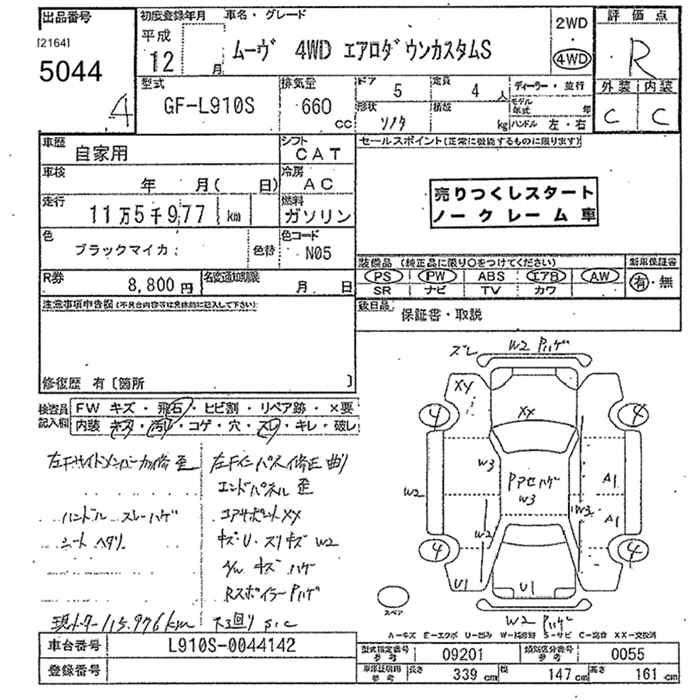 出品番号
[2164]
5044
4
初度登録年月
平成
12 月
車名・グレード
ムーヴ 4WD エアロダウンカスタムS
2WD
4WD
評価点
R
外装 内装
C C
型式
GF-L910S
排気量
660 cc
ドア
5
定員
4 人
形状
積載
kg
ディーラー・並行
モデル年式 年
ハンドル 左・右
車歴
自家用
シフト
CAT
車検
年 月( 日)
冷房
AC
走行
11万5千977 km
燃料
ガソリン
色
ブラックマイカ:
色替
色コード
N05
R券
8,800円
名変通知期限
月 日
セールスポイント(正常に機能するものに限ります)
売りつくしスタート
ノークレーム車
装備品 (純正品に限り○をつけてください)
PS PW ABS エアB AW
SR ナビ TV カワ
新車保証書
有・無
後日品
保証書・取説
注意事項申告欄(不具合内容等は具体的に記入して下さい)
修復歴 有〔箇所 〕
検査員記入欄
FW キズ・飛石・ヒビ割・リペア跡・×要
内装 キズ・汚れ・コゲ・穴・スレ・キレ・破レ
左Fサイドメンバー力修 歪
左Fインパネ修正 曲り
エンドパネル 歪
ハンドル スレハゲ
コアサポートXX
シート ヘタリ
キズU・スリキズ W2
A/W キズ ハゲ
RスポイラーPハゲ
現メーター115.976km
下回り S,C
ズレ W2 Pハゲ
XY
XX
4
4
W3
PアセハゲW3
A1
W2
W3
A1
W2
4
4
U1
U1
W2 Pハゲ
スペア
A-キズ E-エクボ U-凹み W-補修跡 S-サビ C-腐食 XX-交換済
車台番号
L910S-0044142
登録番号
型式指定番号
参考
09201
類別区分番号
参考
0055
車検証説明
参考
長さ
339 cm
幅
147 cm
高さ
161 cm